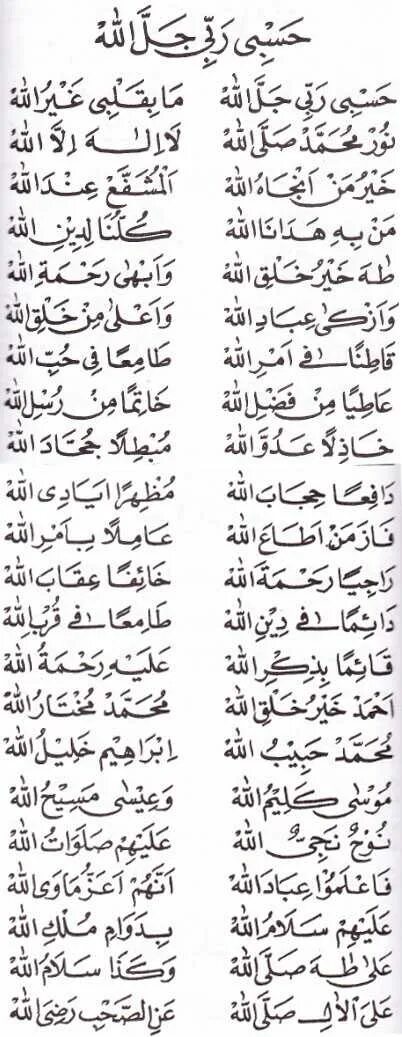 حَسْبِى رَبِّى جَلَّ اللهْ
حَسْبِى رَبِّى جَلَّ اللهْ مَا بِقَلْبِى غَيْرُ اللهْ
نُورْ مُحَمَّدْ صَلَّى اللهْ لَا اِلٰهَ اِلَّا اللهْ
خَيْرُ مَنْ اَنْجَاهُ اللهْ اَلْمُشَفَّعْ عِنْدَ اللهْ
مَنْ بِهِ هَدَانَا اللهْ كُلُّنَا لِدِيْنِ اللهْ
طٰهَ خَيْرُ خَلْقِ اللهْ وَاَبْهٰى رَحْمَةِ اللهْ
وَاَزْكٰى عِبَادِ اللهْ وَاَعْلٰى مِنْ خَلْقِ اللهْ
قَاطِنًا فِي اَمْرِ اللهْ طَامِعًا فِي حُبِّ اللهْ
عَاطِيًا مِنْ فَضْلِ اللهْ خَاتِمًا مِنْ رُسْلِ اللهْ
خَاذِلًا عَدُوَّ اللهْ مُبْطِلًا جُحَّادَ اللهْ
دَافِعًا حِجَابَ اللهْ مُظْهِرًا اَيَادِى اللهْ
فَازَ مَنْ اَطَاعَ اللهْ عَامِلًا بِاَمْرِ اللهْ
رَاجِيًا رَحْمَةَ اللهْ خَائِفًا عِقَابَ اللهْ
دَائِمًا فِي دِيْنِ اللهْ طَامِعًا فِي قُرْبِ اللهْ
قَائِمًا بِذِكْرِ اللهْ عَلَيْهِ رَحْمَةُ اللهْ
اَحْمَدْ خَيْرُ خَلْقِ اللهْ مُحَمَّدْ مُخْتَارُ اللهْ
مُحَمَّدْ حَبِيْبُ اللهْ اِبْرَاهِيْم خَلِيْلُ اللهْ
مُوْسٰى كَلِيْمُ اللهْ وَعِيْسٰى مَسِيْحُ اللهْ
نُوْحٌ نَجِيُّ اللهْ عَلَيْهِمْ صَلَوَاتُ اللهْ
فَاعْلَمُوْا عِبَادَ اللهْ اَنَّهُمْ اَعَزُّ مَاوَى اللهْ
عَلَيْهِمْ سَلَامُ اللهْ بِدَوَامِ مُلْكِ اللهْ
عَلٰى طٰهَ صَلَّى اللهْ وَكَذَا سَلَامُ اللهْ
عَلَى الْاٰلِ صَلَّى اللهْ عَنِ الصَّحْبِ رَضِىَ اللهْ